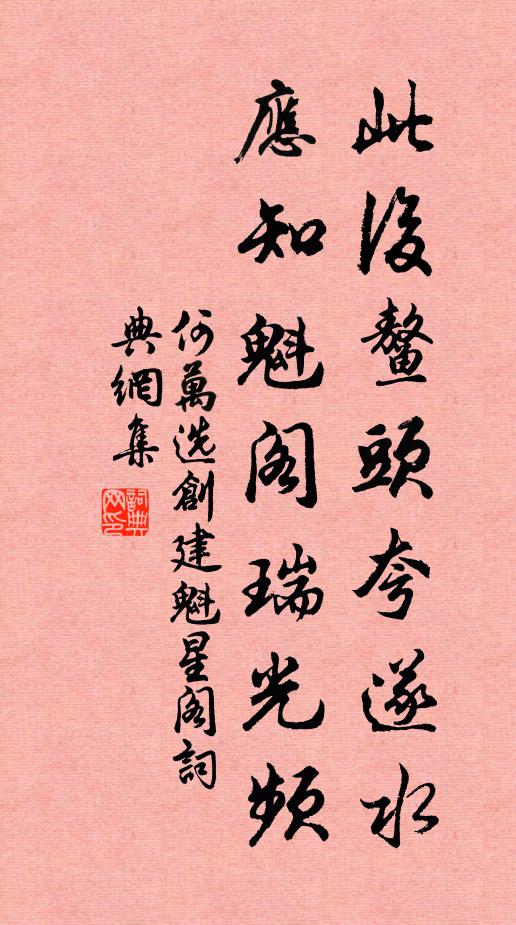 此後鼇頭夸遂水
應知魁閣瑞光頻
何萬选創建魁星阁詞
典網集
詞典網印